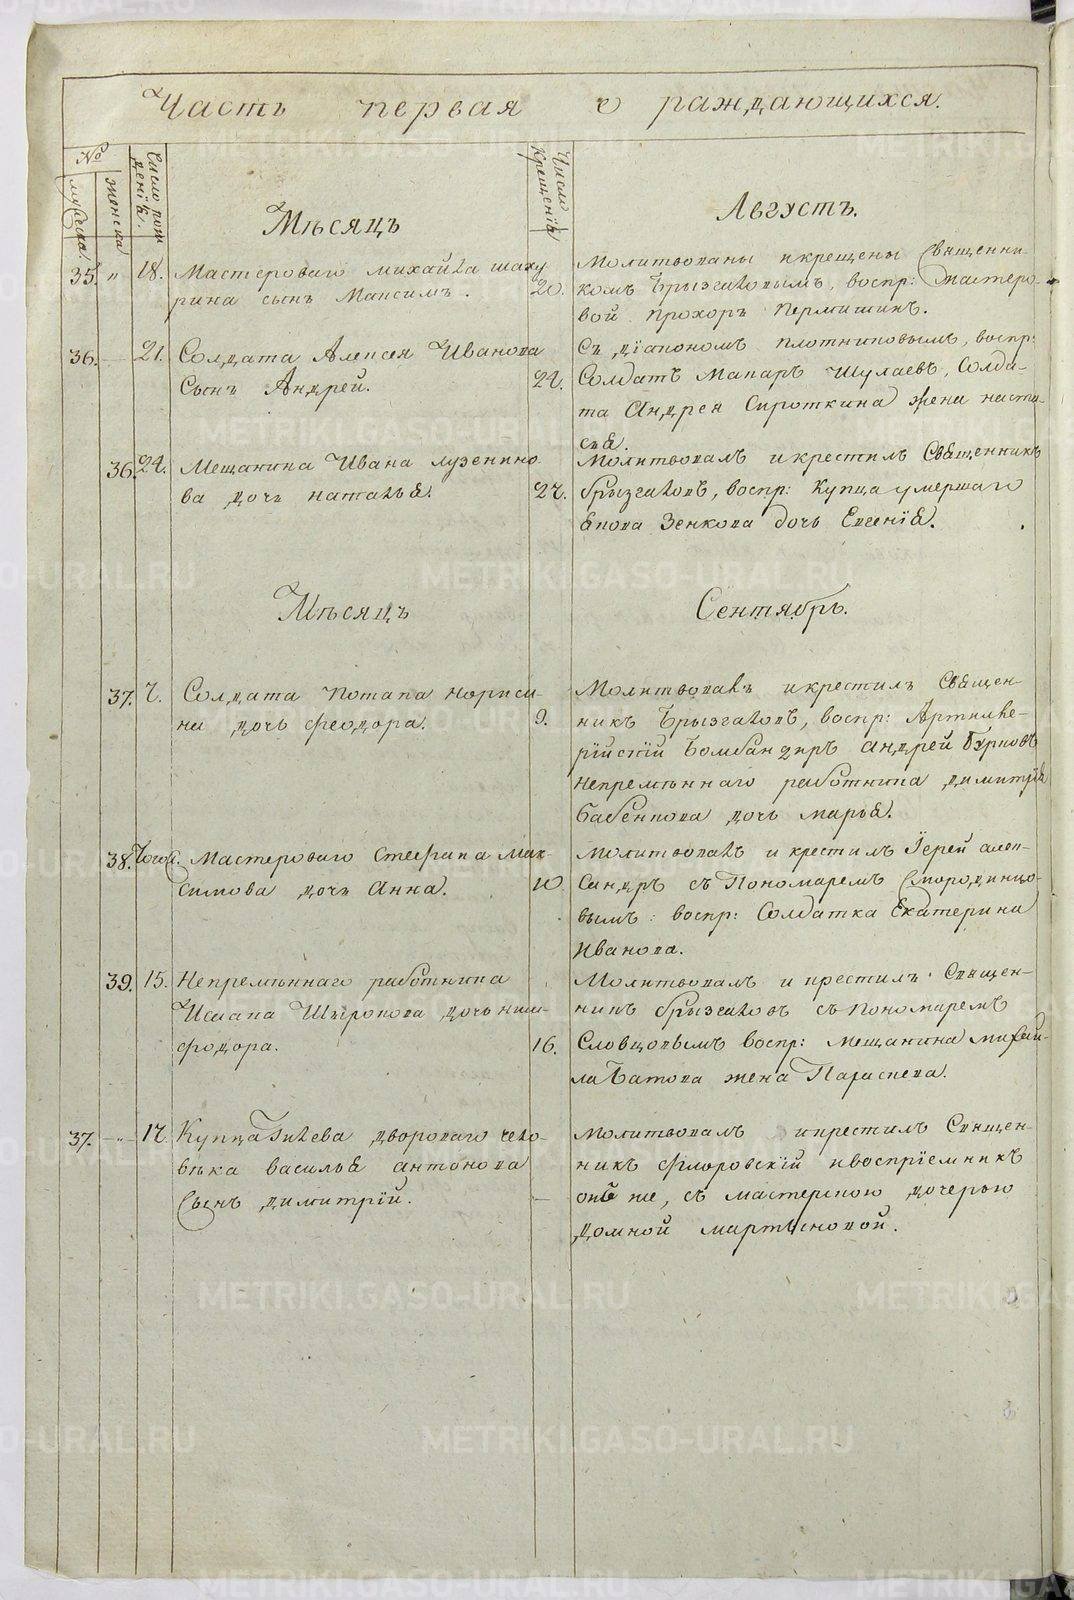 Часть первая о раждающихся.
№
мужеска.
женска
Число рож
денія.
Число
Крещенія
Мѣсяцъ
Августъ.
35. " 18. Мастероваго михайла шаху
рина сынъ Максимъ.
20.
Молитвованы икрещены Священни-
комъ Брызгаловымъ, воспр: Мастеро-
вой Прохоръ Пермитинъ.
36. 21. Солдата Алексея Иванова
Сынъ Андрей.
22.
Съ діакономъ плотниковымъ, воспр:
Солдатъ Макаръ Шулаевъ, Солда-
та Андрея Сироткина жена наста-
сья.
36. 24. Мещанина Ивана лузенино
ва дочь наталья.
27.
Молитвовалъ икрестилъ Священникъ
брызгаловъ, воспр: Купца умершаго
якова Зенкова дочь Евгенія.
Мѣсяцъ
Сентябрь.
37. 7. Солдата Потапа Нориси-
на дочь феодора.
9.
Молитвовалъ икрестилъ Священ-
никъ Брызгаловъ, воспр: Артилле-
рійскій Бомбандиръ Андрей Бурковъ
Непремѣннаго работника димитрія
бабенкова дочь марья.
38. Того Мастероваго Стефана Мак-
симова дочь Анна.
10.
Молитвовалъ и крестилъ Іерей алек-
сандръ съ Пономаремъ Смородинцо-
вымъ: воспр: Солдатка Екатерина
Иванова.
39. 15. Непремѣннаго работника
Исаака Широкова дочь ники-
фодора.
16.
Молитвовалъ и крестилъ Священ-
никъ брызгаловъ съ Пономаремъ
Словцовымъ воспр: мещанина михай-
ла Батова жена Параскева.
37. " 17. Купца Гилева двороваго чело-
вѣка василья антонова
Сынъ димитрій.
Молитвовалъ икрестилъ Священ-
никъ Флоровскій ивоспріемникъ
онъ же, съ мастерскою дочерью
домной мартыновой.
METRIKI.GASO-URAL.RU